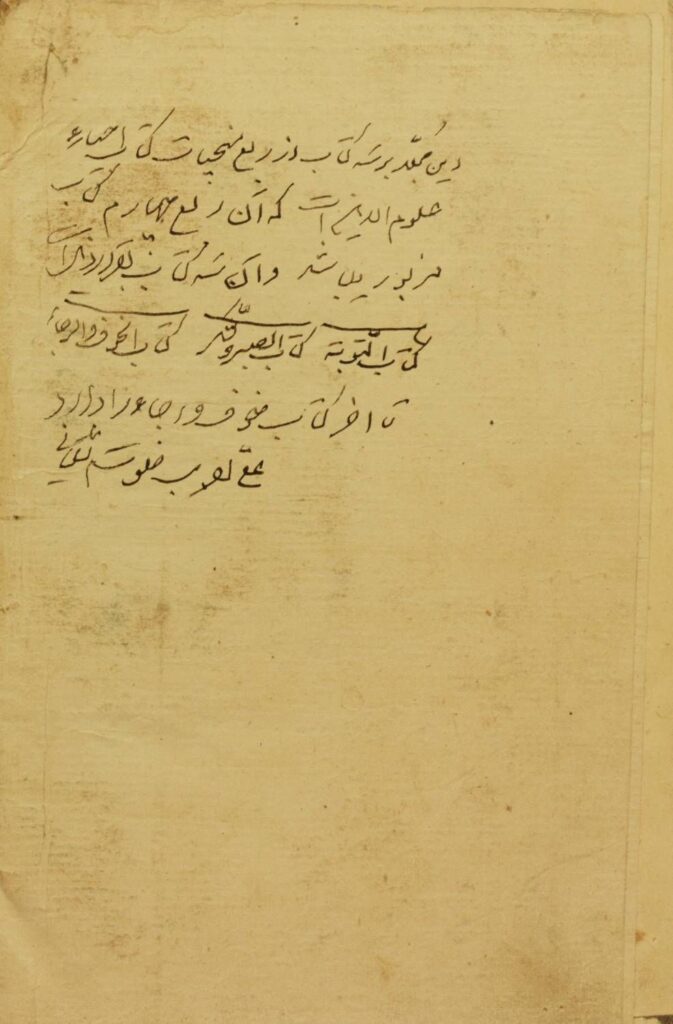 این مجلد بر سه کتاب از ربع منجیات کتاب احیاء
علوم الدین است که آن ربع چهارم کتاب
مزبور میباشد و آن سه کتاب
کتاب التوبة کتاب الصبر والشکر کتاب الخوف والرجاء
تا اخر کتاب خوف و رجاء را دارد